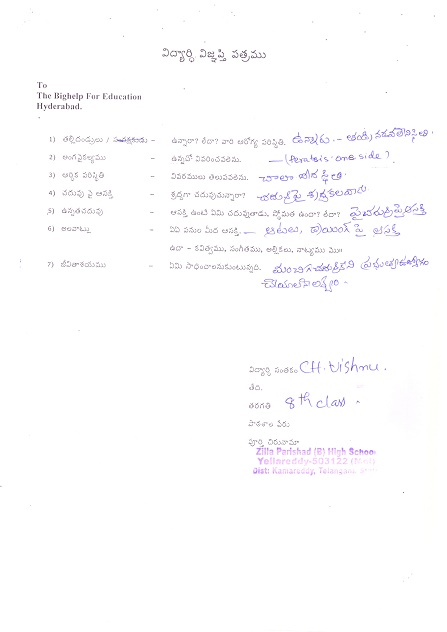 విద్యార్థి విజ్ఞప్తి పత్రము
To
The Bighelp For Education
Hyderabad.
1) తల్లిదండ్రులు / – ఉన్నారా? లేదా? వారి ఆరోగ్య పరిస్థితి. ఉన్నారు -
2) అంగవైకల్యము – ఉన్నచో వివరించవలెను. — ( one side?
3) ఆర్థిక పరిస్థితి – వివరములు తెలుపవలెను. చాలా
4) చదువు పై ఆసక్తి – శ్రద్ధగా చదువుచున్నారా?
5) ఉన్నతచదువు – ఆసక్తి ఉంటే ఏమి చదువుతాడు, స్తోమత ఉందా? లేదా?
6) అలవాట్లు – ఏ ఏ పనుల మీద ఆసక్తి. — ఆటలు, డ్రాయింగ్ పై ఆసక్తి
ఉదా – కవిత్వము, సంగీతము, అల్లికలు, నాట్యము మొ॥
7) జీవితాశయము – ఏమి సాధించాలనుకుంటున్నది. మంచిగా ప్రభుత్వ ఉద్యోగం
విద్యార్థి సంతకం CH. Vishnu.
తేది.
తరగతి 8th class -
పాఠశాల పేరు
పూర్తి చిరునామా
Zilla Parishad (B) High School
Yellareddy-503122 (Mdl)
Dist: Kamareddy, Telangana